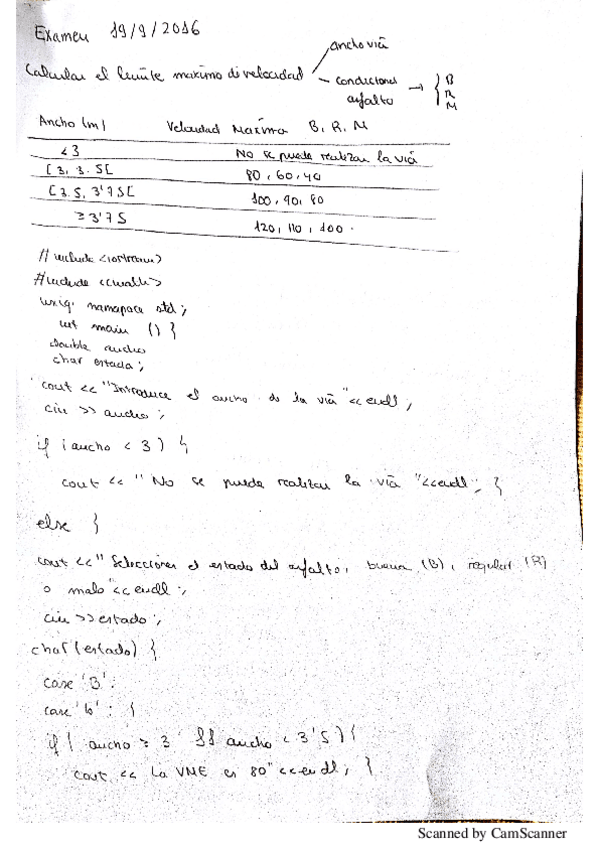 Examen 19/9/2016
ancho vía
Calcular el límite máximo di velocidad
condiciones asfalto → B R M
Ancho (m) Velocidad Máxima B, R, M
<3 No se puede realizar la vía
[3, 3.5[ 80, 60, 40
[3.5, 3'75[ 100, 90, 80
≥ 3'75 120, 110, 100.
# include <iostream>
#include <cmath>
using namespace std;
int main () {
double ancho
char estado;
cout << "Introduce el ancho de la vía "<< endl;
cin >> ancho;
if (ancho < 3) {
cout << " No se puede realizar la vía "<<endl; }
else {
cout << " Seleccione el estado del asfalto, buena (B), regular (R)
o malo"<< endl;
cin >> estado;
char (estado) {
case 'B':
case 'b': {
if ( ancho ≥ 3 && ancho < 3'5) {
cout << La VME es 80" << endl; }
Scanned by CamScanner